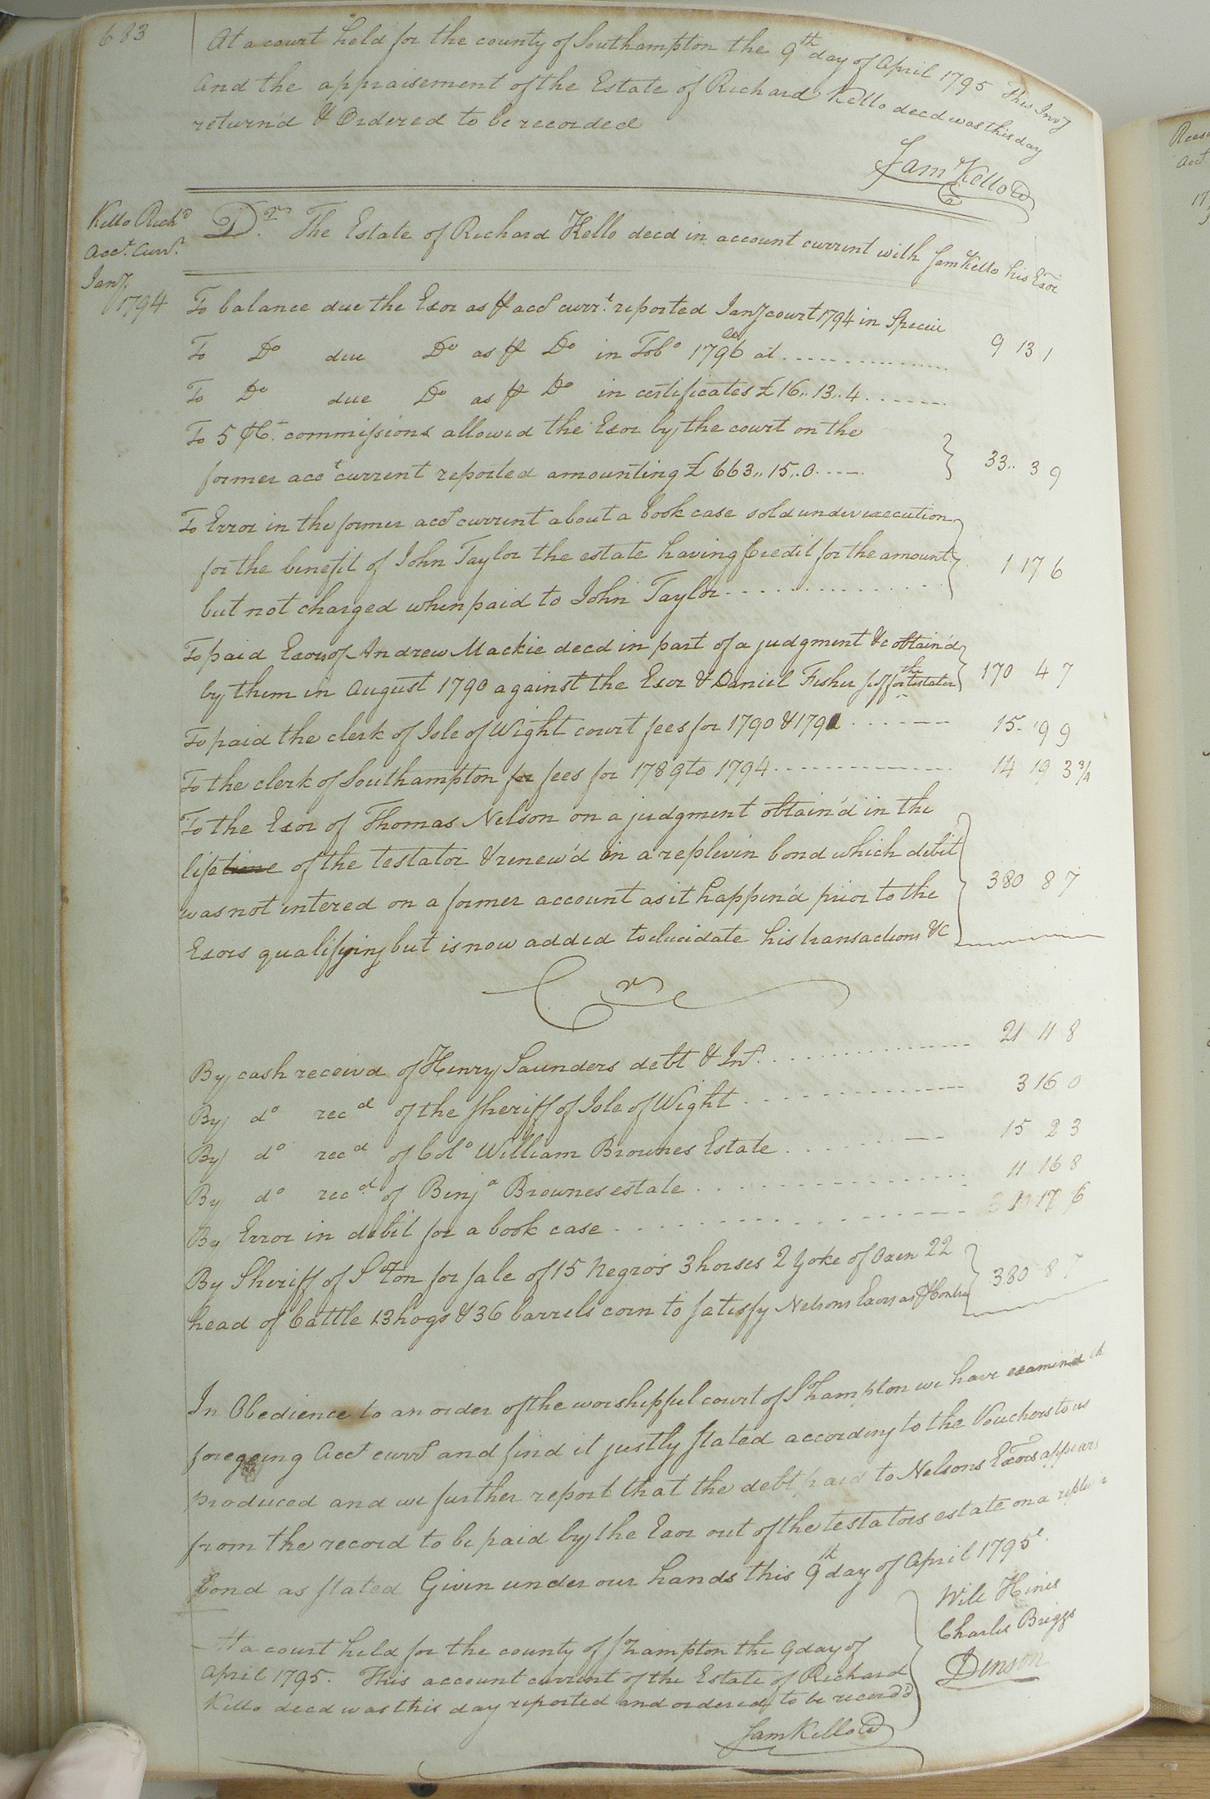 683
At a court held for the county of Southampton the 9th day of April 1795 This Invy
And the appraisement of the Estate of Richard Kello decd was this day
return'd & Ordered to be recorded
Sam Kello CC
Kello Richd
Acct. Curr.t
Jany.
1794
Dr. The Estate of Richard Kello decd in account current with Sam Kello his Exor
To balance due the Exor as ⅌ acct currt. reported Jany court 1794 in Specie 9 13 1
To Do due Do as ⅌ Do in Tobo 1796 at
To Do due Do as ⅌ Do in certificates £16..13..4
To 5 ⅌Ct. commissions allowed the Exor by the court on the
former acct current reported amounting £663..15..0 33.. 3 9
To Error in the former acct current about a book case sold under execution
for the benefit of John Taylor the estate having Credit for the amount 1 17 6
but not charged when paid to John Taylor
To paid Exors of Andrew Mackie decd in part of a judgment &c obtain'd
by them in August 1790 against the Exor & Daniel Fisher for the testator 170 4 7
To paid the clerk of Isle of Wight court fees for 1790 & 1791 15. 19 9
To the clerk of Southampton for fees for 1789 to 1794 14 19 3 3/4
To the Exor of Thomas Nelson on a judgment obtain'd in the
life time of the testator & renew'd in a replevin bond which debit
was not intered on a former account as it happen'd prior to the 380 8 7
Exors qualifying but is now added to elucidate his transactions &c
Cr
By cash receivd of Henry Saunders debt & Int. 21 11 8
By do recd of the Sheriff of Isle of Wight 3 16 0
By do recd of Colo William Brownes Estate 15 2 3
By do recd of Binja Brownes estate 11 16 8
By Error in debit for a book case 1 17 6
By Sheriff of S'ton for sale of 15 Negros 3 horses 2 Yoke of Oxen 22
head of Cattle 13 hogs & 36 barrels corn to satisfy Nelsons Exors as ⅌ Contra 380 8 7
In Obedience to an order of the worshipful court of S'hampton we have examin'd th
foregoing Acct currt and find it justly stated according to the Vouchers to us
produced and we further report that the debt paid to Nelsons Exors appears
from the record to be paid by the Exor out of the testators estate on a
bond as stated Given under our hands this 9th day of April 1795
Will Hines
Charles Briggs
At a court held for the county of S'hampton the 9 day of
April 1795. This account current of the Estate of Richard
Kello decd was this day reported and ordered to be record'd
Sam Kello CC